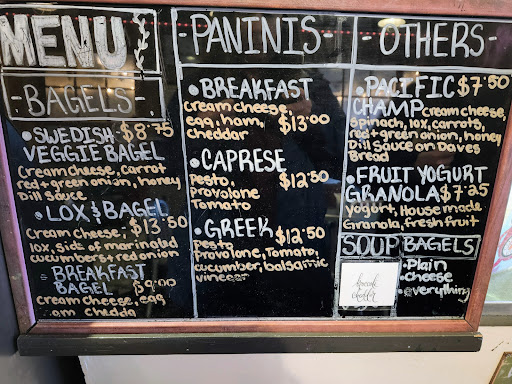 MENU
- BAGELS -
• SWEDISH $8.75
VEGGIE BAGEL
Cream Cheese, Carrot
red + green onion, honey
Dill sauce
• LOX & BAGEL
Cream Cheese, $13.50
lox, side of marinated
cucumbers + red onion
BREAKFAST
BAGEL $9.00
Cream cheese, egg
am chedda
- PANINIS -
• BREAKFAST
cream cheese,
egg, ham, $13.00
cheddar
• CAPRESE
pesto, $12.50
provolone
Tomato
• GREEK $12.50
Pesto
Provolone, Tomato,
cucumber, balsamic
vinegar
- OTHERS -
• PACIFIC $7.50
CHAMP cream cheese,
spinach, lox, carrots,
red + green onion, honey
Dill sauce on Daves
Bread
• FRUIT YOGURT
GRANOLA $7.25
Yogurt, House made
Granola, fresh fruit
SOUP
broccoli
cheddar
BAGELS
• Plain
• cheese
• everything